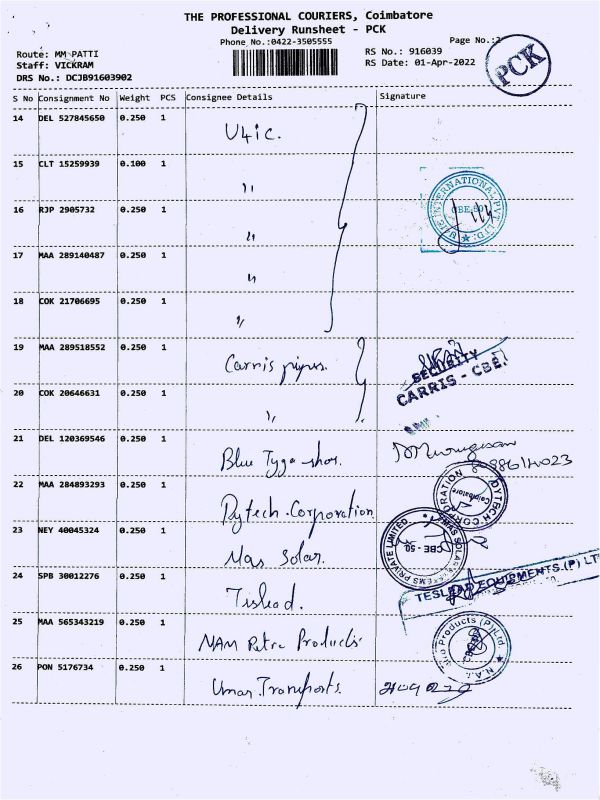 THE PROFESSIONAL COURIERS, Coimbatore
Delivery Runsheet - PCK
Phone No.:0422-3505555
Page No.:2
Route: MM PATTI
RS No.: 916039
Staff: VICKRAM
RS Date: 01-Apr-2022
DRS No.: DCJB91603902
PCK
S No Consignment No Weight PCS Consignee Details Signature
14 DEL 527845650 0.250 1 U4ic.
15 CLT 15259939 0.100 1 "
16 RJP 2905732 0.250 1 "
17 MAA 289140487 0.250 1 "
18 COK 21706695 0.250 1 "
INTERNATIONAL PVT. LTD.
CBE-50
19 MAA 289518552 0.250 1 Carris pipes.
SECURITY
CARRIS - CBE.
20 COK 20646631 0.250 1 "
21 DEL 120369546 0.250 1 Blue Tyga
22 MAA 284893293 0.250 1 Dytech Corporation
DYTECH CORPORATION
Coimbatore
23 NEY 40045324 0.250 1 Mas Solar.
MAS SOLAR SYSTEMS PRIVATE LIMITED
CBE - 50
24 SPB 30012276 0.250 1 Tislead.
TESLEAD EQUIPMENTS.(P) LT
25 MAA 565343219 0.250 1 NAM Petro Products
Products (P) Ltd.
26 PON 5176734 0.250 1 Umar Transports.